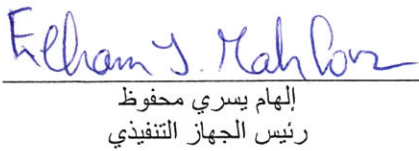 Elham Y. Mahfouz
إلهام يسري محفوظ
رئيس الجهاز التنفيذي